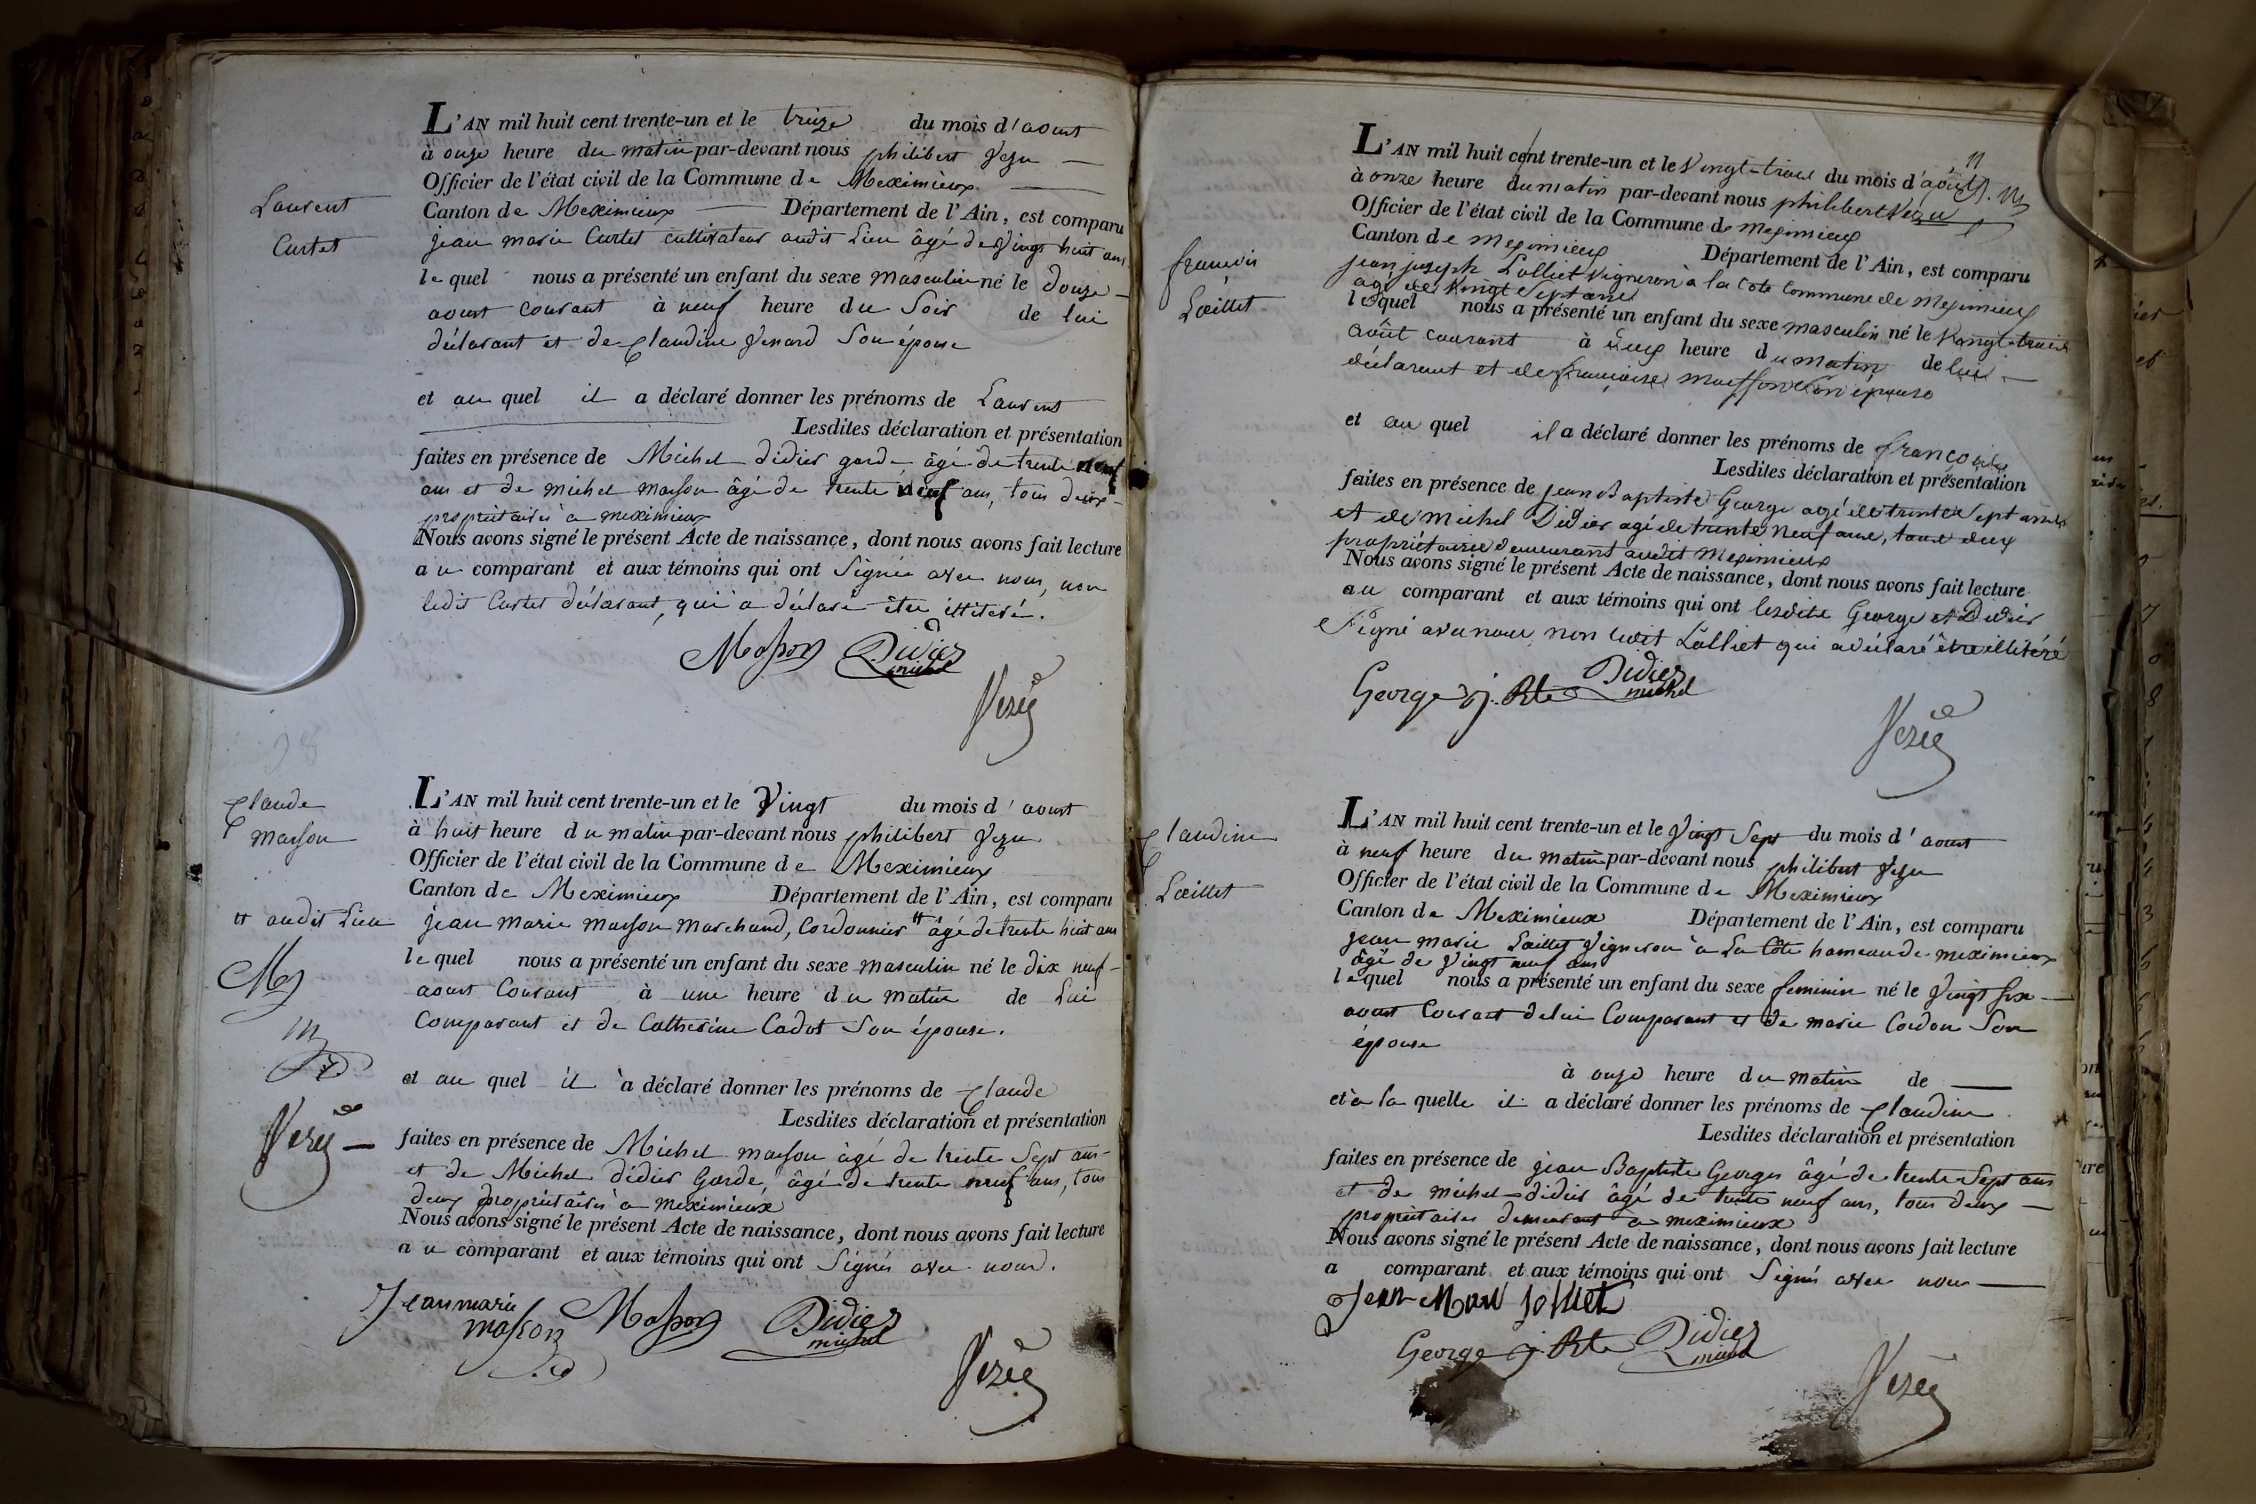 Laurent
Curtet
L'AN mil huit cent trente-un et le treize du mois d'aoust
à onze heure du matin par-devant nous philibert Vezu
Officier de l'état civil de la Commune de Meximieux
Canton de Meximieux Département de l'Ain, est comparu
jean marie Curtet cultivateur audit Lieu âgé de Vingt huit ans
lequel nous a présenté un enfant du sexe masculin né le douze
aoust courant à neuf heure du Soir de lui
déclarant et de Claudine Venard Son épouse
et au quel il a déclaré donner les prénoms de Laurent
Lesdites déclaration et présentation
faites en présence de Michel didier garde âgé de trente neuf
ans et de michel masson âgé de trente ans, tous deux
propriétaires à meximieux
Nous avons signé le présent Acte de naissance, dont nous avons fait lecture
au comparant et aux témoins qui ont Signés avec nous, non
ledit Curtet déclarant, qui a déclaré être illitéré.
Masson Didier
michel
Vezu
Claude
masson
L'AN mil huit cent trente-un et le Vingt du mois d'aoust
à huit heure du matin par-devant nous philibert Vezu
Officier de l'état civil de la Commune de Meximieux
Canton de Meximieux Département de l'Ain, est comparu
tt audit Lieu
jean marie masson marchand, Cordonnier tt âgé de trente huit ans
lequel nous a présenté un enfant du sexe masculin né le dix neuf
aoust Courant à une heure du matin de Lui
Comparant et de Catherine Cadot Son épouse.
et au quel il a déclaré donner les prénoms de Claude
Lesdites déclaration et présentation
Vezu
faites en présence de Michel masson âgé de trente Sept ans
et de Michel didier Garde, âgé de trente neuf ans, tous
deux propriétaires à meximieux
Nous avons signé le présent Acte de naissance, dont nous avons fait lecture
au comparant et aux témoins qui ont Signés avec nous.
Jean marie
masson Masson Didier
michel
Vezu
françois
Lœillet
L'AN mil huit cent trente-un et le Vingt-trois du mois d'août
à onze heure du matin par-devant nous philibert Vezu
Officier de l'état civil de la Commune de meximieux
Canton de meximieux Département de l'Ain, est comparu
jean joseph Lolliet Vigneron à la Cote Commune de meximieux
agé de Vingt Sept ans
lequel nous a présenté un enfant du sexe masculin né le Vingt-trois
août courant à deux heure du matin de lui
déclarant et de françoise masson Son épouse
et au quel il a déclaré donner les prénoms de françois
Lesdites déclaration et présentation
faites en présence de jean Baptiste George agé de trente Sept ans
et de michel Didier agé de trente neuf ans, tous deux
propriétaires demeurant audit meximieux
Nous avons signé le présent Acte de naissance, dont nous avons fait lecture
au comparant et aux témoins qui ont lesdits George et Didier
Signé avec nous non ledit Lolliet qui a déclaré être illitéré
George j. Bte Didier
michel
Vezu
Claudine
Lœillet
L'AN mil huit cent trente-un et le Vingt Sept du mois d'aoust
à neuf heure du matin par-devant nous philibert Vezu
Officier de l'état civil de la Commune de Meximieux
Canton de Meximieux Département de l'Ain, est comparu
jean marie Lœillet Vigneron à La Côte hameau de meximieux
âgé de Vingt neuf ans
lequel nous a présenté un enfant du sexe feminin né le Vingt six
aoust Courant de lui Comparant et de marie Cordon Son
épouse
à onze heure du matin de
et à la quelle il a déclaré donner les prénoms de Claudine
Lesdites déclaration et présentation
faites en présence de jean Baptiste Georges âgé de trente Sept ans
et de michel didier âgé de trente neuf ans, tous deux
propriétaires demeurant à meximieux
Nous avons signé le présent Acte de naissance, dont nous avons fait lecture
a comparant et aux témoins qui ont Signés avec nous
Jean Marie
George j Bte Didier
michel
Vezu